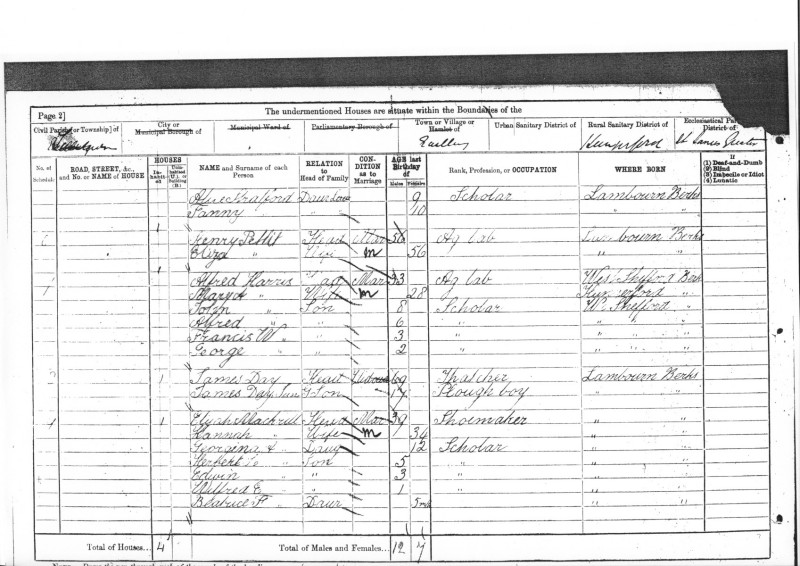 Page 2]
The undermentioned Houses are situate within the Boundaries of the
Civil Parish [or Township] of
City or Municipal Borough of
Municipal Ward of
Parliamentary Borough of
Town or Village or Hamlet of
Urban Sanitary District of
Rural Sanitary District of
Ecclesiastical District of
Eastbury
Hungerford
St James
No. of Schedule
ROAD, STREET, &c., and No. or NAME of HOUSE
HOUSES
Inhabited
Uninhabited (U.), or Building (B.)
NAME and Surname of each Person
RELATION to Head of Family
CONDITION as to Marriage
AGE last Birthday of
Males
Females
Rank, Profession, or OCCUPATION
WHERE BORN
If
(1) Deaf-and-Dumb
(2) Blind
(3) Imbecile or Idiot
(4) Lunatic
9 Scholar Lambourn Berks
Fanny 10 " "
Henry Pettit Head Mar 56 Ag lab Lambourn Berks
Eliza " Wife m 56 " "
Alfred Harris Head Mar 33 Ag lab West Shefford Berks
Mary A " Wife m 28 Hungerford "
John " Son 8 Scholar W. Shefford "
Alfred " " 6 " " "
Francis W " " 3 " " "
George " " 2 " " "
1 James Day Head Widower 69 Thatcher Lambourn Berks
James Day Jun Son 17 Plough boy " "
1 Elijah Head Mar 39 Shoemaker " "
Hannah " Wife m 34 " "
Georgena A " Daur 12 Scholar " "
Herbert " Son 5 " " "
Edwin " " 3 " " "
Wilfred E " " 1 " "
Beatrice F " Daur 5 mo " "
Total of Houses... 4
Total of Males and Females... 12 7